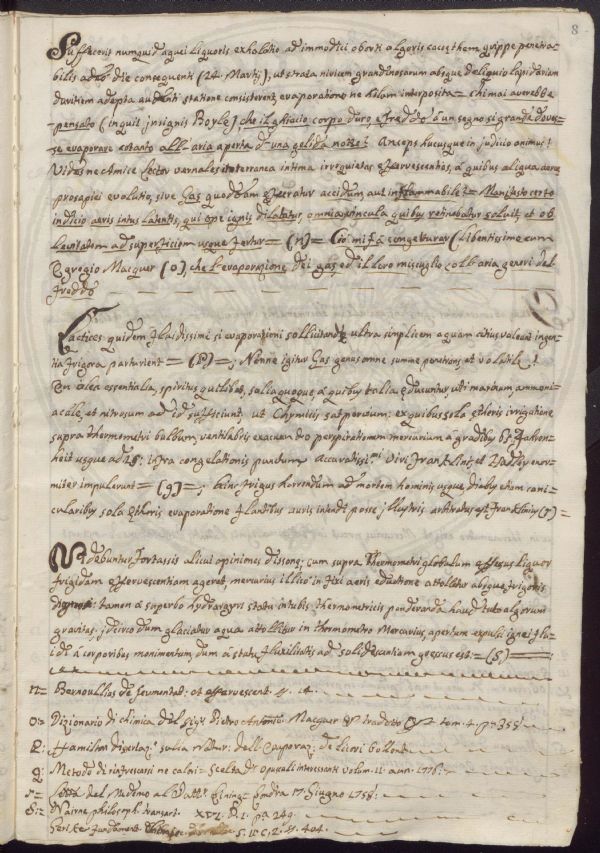 8
Sufficerit numquid aquei liquoris exhalatio ad immodici oborti algoris cacoethem quippe penetra-
bilis adeo die consequenti (24. Martij), ut strata nivium grandinosarum absque deliquio lapidariam
duritiem adepta audenti statione consisterent, evaporatione ne hilam interposita = chi mai averebbe
pensato (inquit insignis Boyle), che il ghiaccio corpo duro, e freddo a un segno sì grande doves-
se evaporare cotanto all'aria aperta d'una gelida notte? Anceps hucusque in judicio animus!
Vides ne Amice Lector vernales interranea intima irrequietas effervescentias, a quibus aliqua aereae
prosapiei evolutio, sive Gas quoddam efferatur accidum, aut inflammabile = Manifesto certo
indicio aeris intus latentis, qui ope ignis dilatatur, omnia vincula quibus retinebatur soluit, et ob
levitatem ad superficiem usque fertur = (n) = Ciò mi fà congetturar (libentissime cum
Egregio Macquer (o), che l'evaporazione dei gas, ed il loro miscuglio coll'aria generi del
freddo
Lactices quidem frigidissimi si evaporationi sollicitandi ultra simplicem aquam citius valeant ingen-
tia frigora parturient = (P) = ; Nonne igitur Gas genus omne summe penetrans, et volatile!
Con olea essentialia, spiritus quilibet, sallaquoque, a quibus talia educuntur, uti marinum, ammoni-
acale, et nitrosum ad id sufficiunt ut Chymicis satporum: ex quibus sola etheris irrigatione
supra thermometri bulbum, ventilabris exacuendo perspirationem mercurium a gradibus 65 Fahren-
heit usque ad 25: infra congelationis punctum Accuratissimi Viri Franklin, et Hadley enor-
miter impulerunt = (q) = ; hinc frigus horrendum ad mortem hominis usque diebus etiam cani-
cularibus sola etheris evaporatione flantibus auris intendi posse illustris arbitratus est Franklin (r) =
Videbuntur fortassis alicui opiniones dissonae; cum supra thermometri globulum effusus liquor
frigidam effervescentiam ageret, mercurius illico in fixi aeris eductione attolletur absque frigoris
: tamen a superbo hydrargyri statu in tubis thermometricis ponderanda haud tuto algorum
gravitas. Idcirco dum glaciatur aqua attollitur in thermometro Mercurius, apertum expulsi ignei flu-
idi a corporibus monimentum, dum a statu fluxilitatis ad solidescentiam egressus est = (S) =
n = Bernoullius de fermentat: et effervescent. §. 14.
o = Dizionario di chimica del Sigr. Pietro Antonio Macquer tradotto tom. 4. pa 355
P: Hamilton dissertaz: sulla natur: dell'evaporaz: de licori bollenti
q: Metodo di rinfrescarsi ne calori = Scelta d'Opuscoli interessanti volum. 11. ann. 1776.
r = Lettera del Medemo al Dott. Londra 17. Giugno 1758.
S: = Nairne philosoph. transact. XVI. P. 1. pa 249.
S. V. C. 2. §. 404.